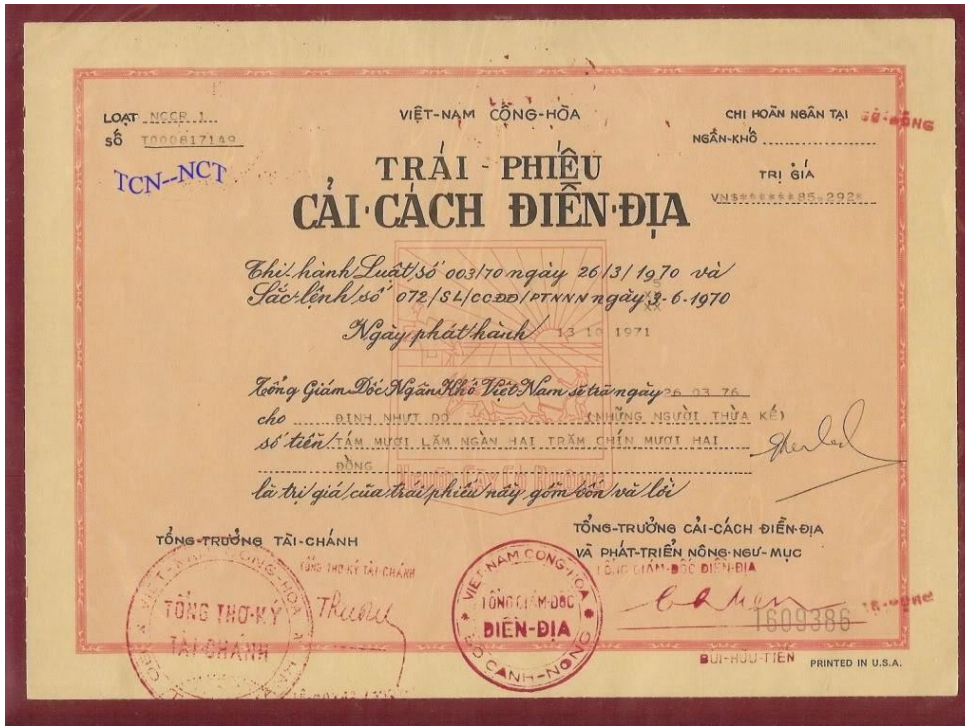 LOẠT NCCR 1
SỐ T000817149
TCN--NCT
VIỆT-NAM CỘNG-HÒA
CHI HOÃN NGÂN TẠI
NGÂN-KHỐ
TRỊ GIÁ
VN$******85.292*
TRÁI - PHIẾU
CẢI·CÁCH ĐIỀN·ĐỊA
Thi-hành Luật số 003/70 ngày 26/3/1970 và
Sắc-lệnh số 072/SL/CCĐĐ/PTNNN ngày 3-6-1970
Ngày phát hành 13 10 1971
Tổng Giám-Đốc Ngân Khố Việt-Nam sẽ trả ngày 26 03 76
cho ĐINH NHỰT DO (NHỮNG NGƯỜI THỪA KẾ)
số tiền TÁM MƯƠI LĂM NGÀN HAI TRĂM CHÍN MƯƠI HAI
ĐỒNG
Người Cày Có Ruộng
là trị giá của trái phiếu này gồm vốn và lời
TỔNG-TRƯỞNG TÀI-CHÁNH
TỔNG THƠ-KÝ TÀI-CHÁNH
TỔNG THƠ-KÝ
TÀI-CHÁNH
TỔNG-TRƯỞNG CẢI-CÁCH ĐIỀN-ĐỊA
VÀ PHÁT-TRIỂN NÔNG-NGƯ-MỤC
TỔNG GIÁM-ĐỐC ĐIỀN-ĐỊA
VIỆT-NAM CỘNG-HÒA
TỔNG GIÁM-ĐỐC
ĐIỀN-ĐỊA
BỘ CANH-NÔNG
1609386
BÙI-HỮU-TIÊN
PRINTED IN U.S.A.